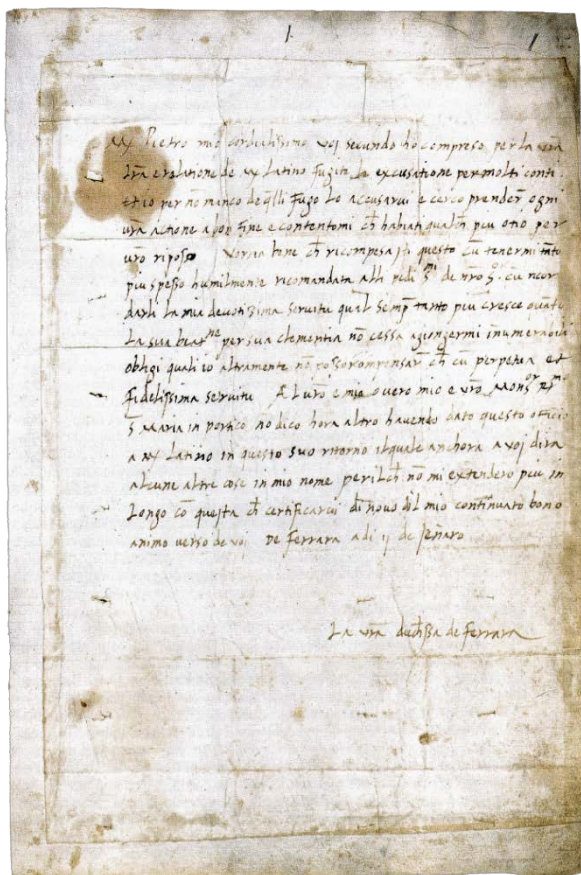 1. 1
Mx Pietro mio cordialissimo voj secundo ho compreso per la vrā
lrā e relatione de mx Latino fugiti la excusatione per molti conti
et io per nō manco de q̄lli fugo lo accusarui e cerco prender ogni
vrā actione a bon fine e contentomi ch habiati qualch peu otio per
vrō riposo Vorao bene ch ricompesati questo cū tenermi tāto
piu spesso humilmente ricomandata alli pedi de nrō cū ricor
darli la mia deuotissima seruitu qual semp tanto peu cresce quāto
La sue beatne per sua clementia nō cessa agiongermi inumerabili
obligi quali io altramente nō posso ricompensar ch cū perpetua et
fidelissima seruitu Al vrō e mio o uero mio e vrō Monsor
S Maria in portico nō dico hora altro hauendo dato questo officio
a mx Latino in questo suo ritorno il quale anchora a voj dira
alcune altre cose in mio nome peril ch nō mi extendero peu in
Longo cō questa ch certificarui di nouo dil mio continuato bono
animo verso de voi De Ferrara a di ij de Jenaro
La vrā duchssa de Ferrara